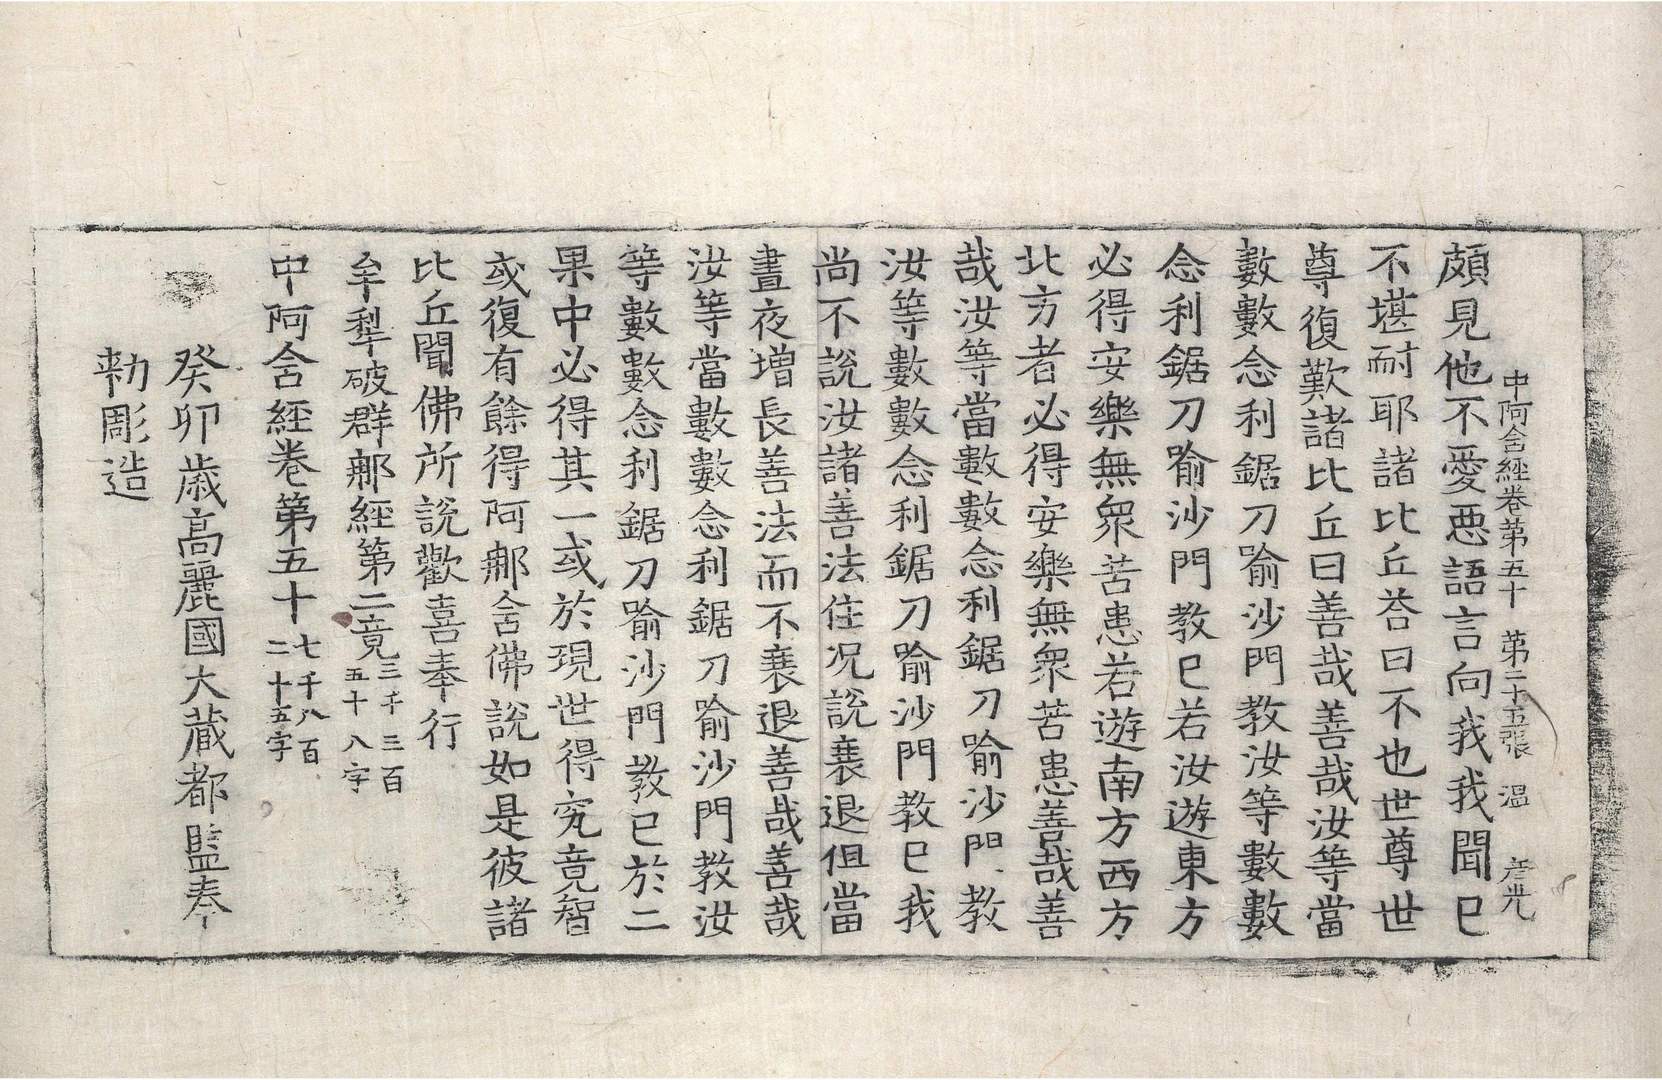 中阿含經卷第五十 第二十五張 溫 彦光
頗見他不愛惡語言向我我聞已
不堪耐耶諸比丘荅曰不也世尊世
尊復歎諸比丘曰善哉善哉汝等當
數數念利鋸刀喻沙門教汝等數數
念利鋸刀喻沙門教已若汝遊東方
必得安樂無衆苦患若遊南方西方
北方者必得安樂無衆苦患善哉善
哉汝等當數數念利鋸刀喻沙門教
汝等數數念利鋸刀喻沙門教已我
尚不說汝諸善法住况說衰退但當
晝夜增長善法而不衰退善哉善哉
汝等當數數念利鋸刀喻沙門教汝
等數數念利鋸刀喻沙門教已於二
果中必得其一或於現世得究竟智
或復有餘得阿那含佛說如是彼諸
比丘聞佛所說歡喜奉行
牟犁破群那經第二竟三千三百五十八字
中阿含經卷第五十七千八百二十五字
癸卯歲高麗國大藏都監奉
勑彫造